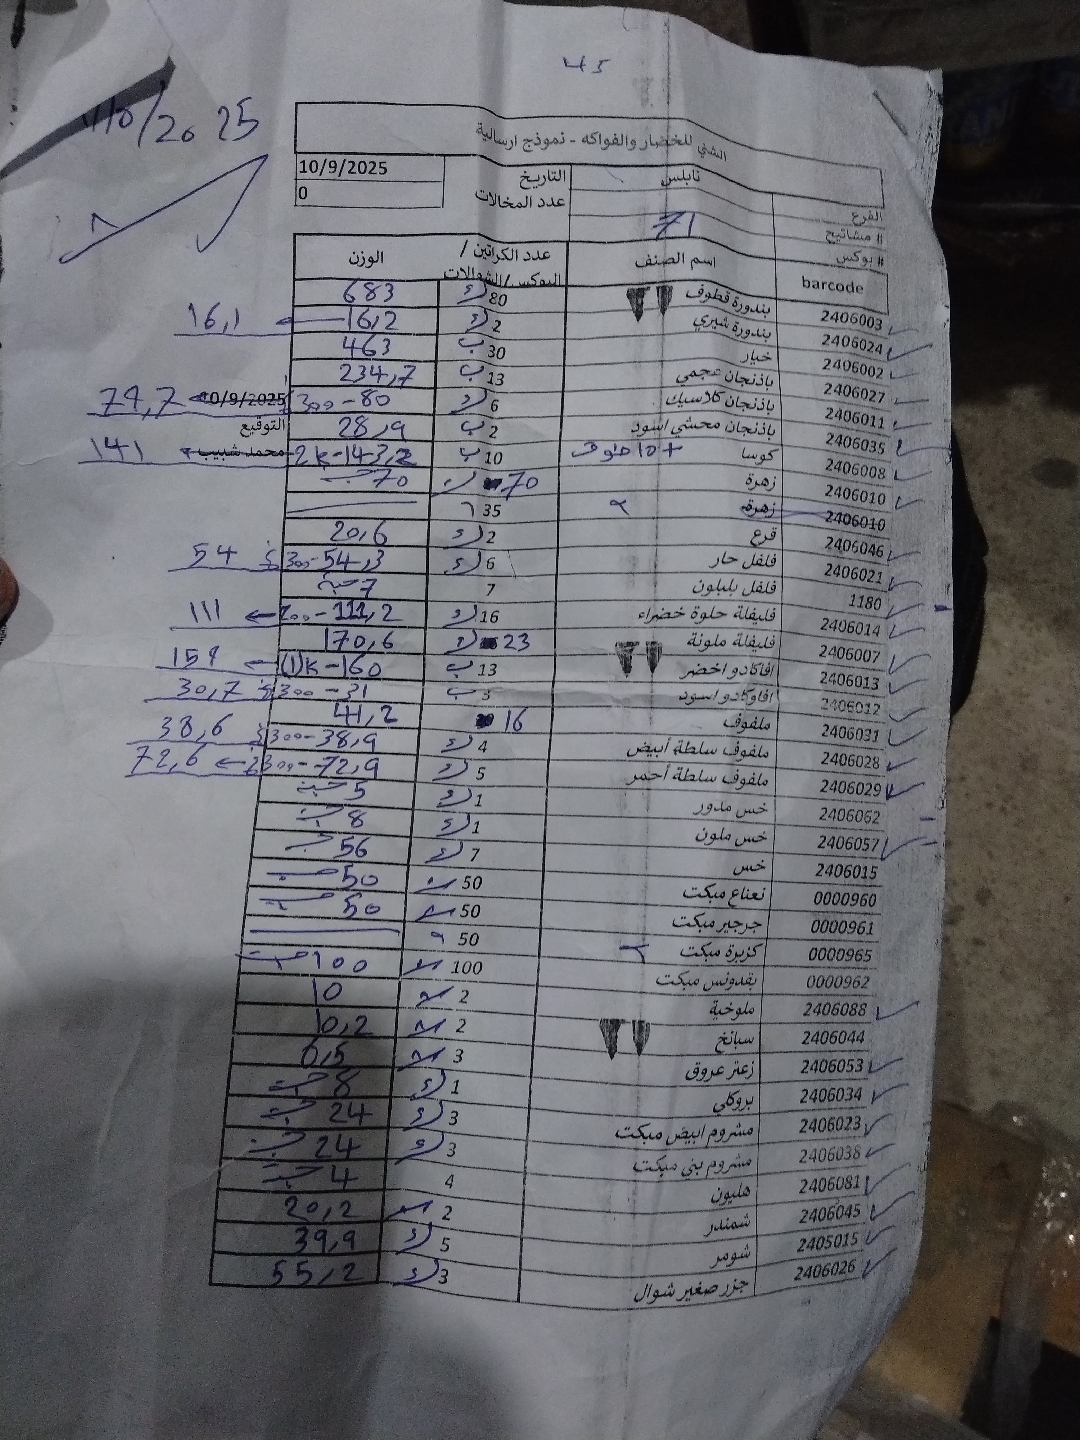 45
10/2025
الشني للخضار والفواكه - نموذج ارسالية
الفرع نابلس التاريخ 10/9/2025
# مشاتيح عدد المخالات 0
# بوكس 71
barcode اسم الصنف عدد الكراتين / البوكس/الشوالات الوزن
2406003 بندورة قطوف 80 683
2406024 بندورة شيري 2 16,2 16,1
2406002 خيار 30 463
2406027 باذنجان عجمي 13 234,7
2406011 باذنجان كلاسيك 6 300-80 10/9/2025 79,7
2406035 باذنجان محشي اسود 2 28,9 التوقيع
2406008 كوسا 10 2k-143,2 محمد شبيب 141
2406010 زهرة 70 70 حبة
2406010 زهرة 35
2406046 قرع 2 20,6
2406021 فلفل حار 6 300-54,3 54
1180 فلفل بلبلون 7 7 حبة
2406014 فليفلة حلوة خضراء 16 200-111,2 111
2406007 فليفلة ملونة 23 170,6
2406013 افاكادو اخضر 13 (1)k-160 159
2406012 افاوكادو اسود 3 300-31 30,7
2406031 ملفوف 16 41,2
2406028 ملفوف سلطة أبيض 4 300-38,9 38,6
2406029 ملفوف سلطة أحمر 5 300-72,9 72,6
2406062 خس مدور 1 5 حبة
2406057 خس ملون 1 8 حبة
2406015 خس 7 56 حبة
0000960 نعناع مبكت 50 50 حبة
0000961 جرجير مبكت 50 50 حبة
0000965 كزبرة مبكت 50
0000962 بقدونس مبكت 100 100 حبة
2406088 ملوخية 2 10
2406044 سبانخ 2 10,2
2406053 زعتر عروق 3 6,5
2406034 بروكلي 1 8 حبة
2406023 مشروم ابيض مبكت 3 24 حبة
2406038 مشروم بني مبكت 3 24 حبة
2406081 هليون 4 4 حبة
2406045 شمندر 2 20,2
2405015 شومر 5 39,9
2406026 جزر صغير شوال 3 55,2